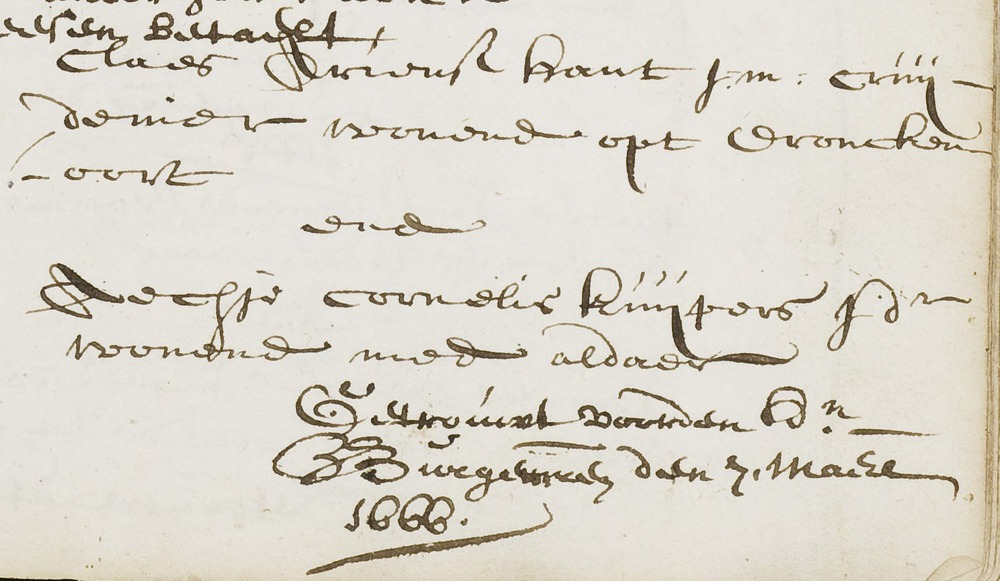 betaelt
Claes Ariensz kant j:m: cruij-
denier wonend opt droncken
-oort
end
Aechje Cornelis kuijpers j.dr
wonend med aldaer
Getrouwt voorden hn
Burgemren den 7. Maert
1666.